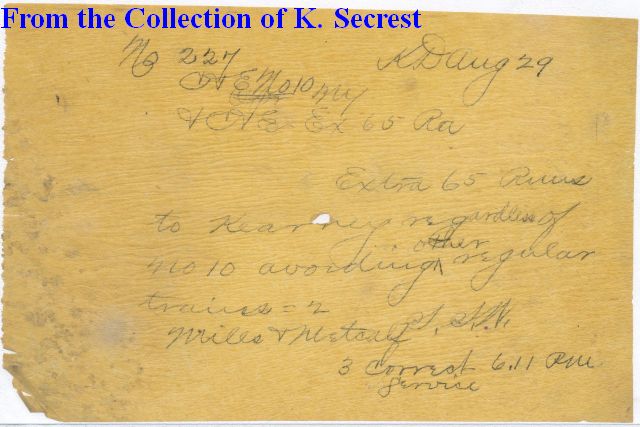 From the Collection of K. Secrest
No 227 KD Aug 29
C & E No 10 My
& C & E Ex 65 Ra
Extra 65 Runs
to Kearney regardless of
No 10 avoiding other regular
trains = 2
Miles & Metcalf
3 Correct 6.11 Pm
Service